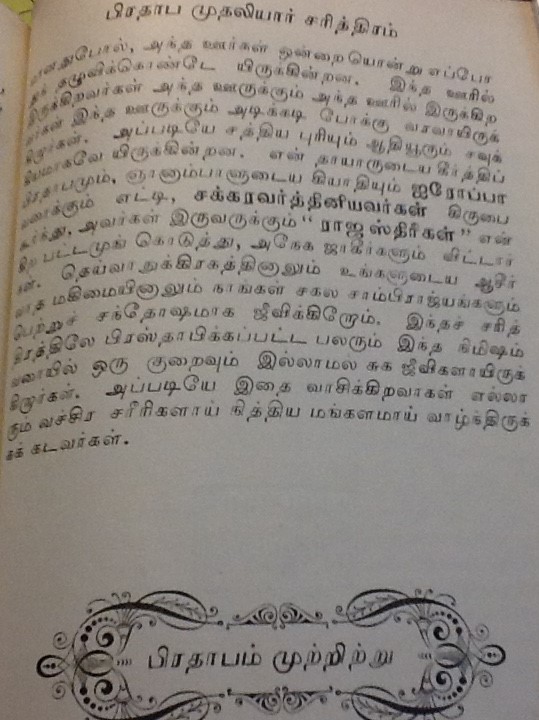 பிரதாப முதலியார் சரித்திரம்
வனதுபோல், அந்த ஊர்கள் ஒன்றையொன்று எப்போ
தழுவிக்கொண்டே யிருக்கின்றன. இந்த ஊரில்
இருக்கிறவர்கள் அந்த ஊருக்கும் அந்த ஊரில் இருக்கிற
வர்கள் இந்த ஊருக்கும் அடிக்கடி போக்கு வரவாயிருக்
கிறார்கள். அப்படியே சத்திய புரியும் ஆதியூரும் சவுக்
கியமாகவே யிருக்கின்றன. என் தாயாருடைய கீர்த்திப்
பிரதாபமும், ஞானாம்பாளுடைய கியாதியும் ஐரோப்பா
வரைக்கும் எட்டி, சக்கரவர்த்தினியவர்கள் கிருபை
கூர்ந்து, அவர்கள் இருவருக்கும் “ராஜஸ்திரீகள்” என்
கிற பட்டமுங் கொடுத்து, அநேக ஜாகீர்களும் விட்டார்
கள். தெய்வாநுக்கிரகத்தினாலும் உங்களுடைய ஆசீர்
வாத மகிமையினாலும் நாங்கள் சகல சாம்பிராஜ்யங்களும்
பெற்றுச் சந்தோஷமாக ஜீவிக்கிறோம். இந்தச் சரித்
திரத்திலே பிரஸ்தாபிக்கப்பட்ட பலரும் இந்த நிமிஷம்
வரையில் ஒரு குறைவும் இல்லாமல் சுக ஜீவிகளாயிருக்
கிறார்கள். அப்படியே இதை வாசிக்கிறவர்கள் எல்லா
ரும் வச்சிர சரீரிகளாய் நித்திய மங்களமாய் வாழ்ந்திருக்
கக் கடவர்கள்.
பிரதாபம் முற்றிற்று